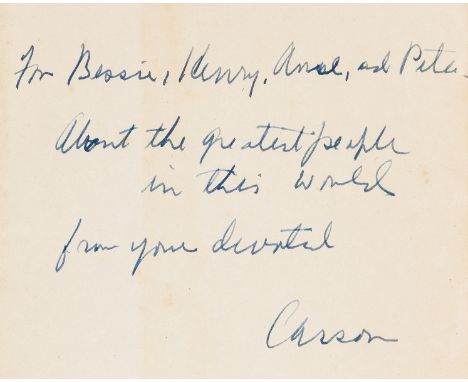 For Bessie, Henry, Anne, and Peter
About the greatest people
in this world
from your devoted
Carson